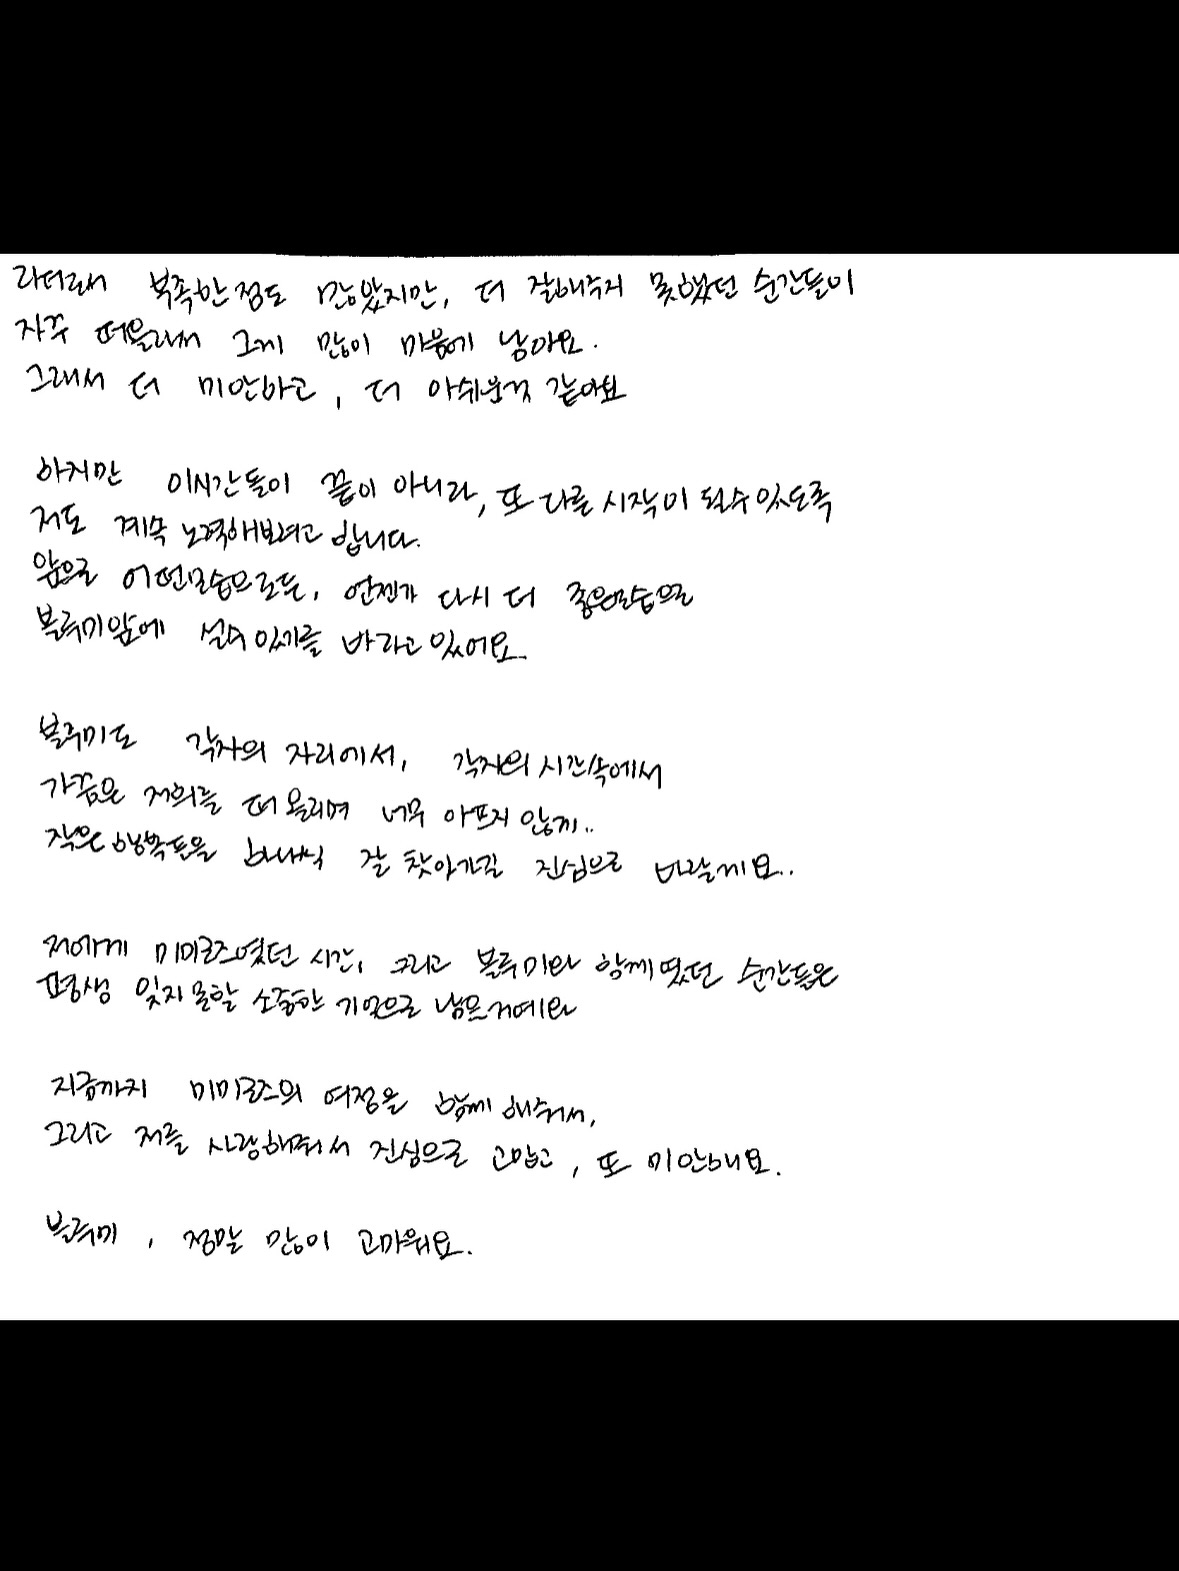 부족한점도 많았지만, 더 잘해주지 못했던 순간들이
자꾸 떠올라서 그게 많이 마음에 남아요.
그래서 더 미안하고, 더 아쉬운것 같아요
하지만 이시간들이 끝이 아니라, 또 다른 시작이 될수있도록
저도 계속 노력해보려고 합니다.
앞으로 어떤모습으로든, 언젠가 다시 더 좋은모습으로
블루미앞에 설수있기를 바라고있어요.
블루미도 각자의 자리에서, 각자의 시간속에서
가끔은 저희를 떠올리며 너무 아프지 않게..
작은행복들을 하나씩 잘 찾아가길 진심으로 바랄게요..
저에게 미미로즈였던 시간, 그리고 블루미와 함께였던 순간들은
평생 잊지못할 소중한 기억으로 남을거예요
지금까지 미미로즈의 여정을 함께 해줘서,
그리고 저를 사랑해줘서 진심으로 고맙고, 또 미안해요.
블루미, 정말 많이 고마워요.